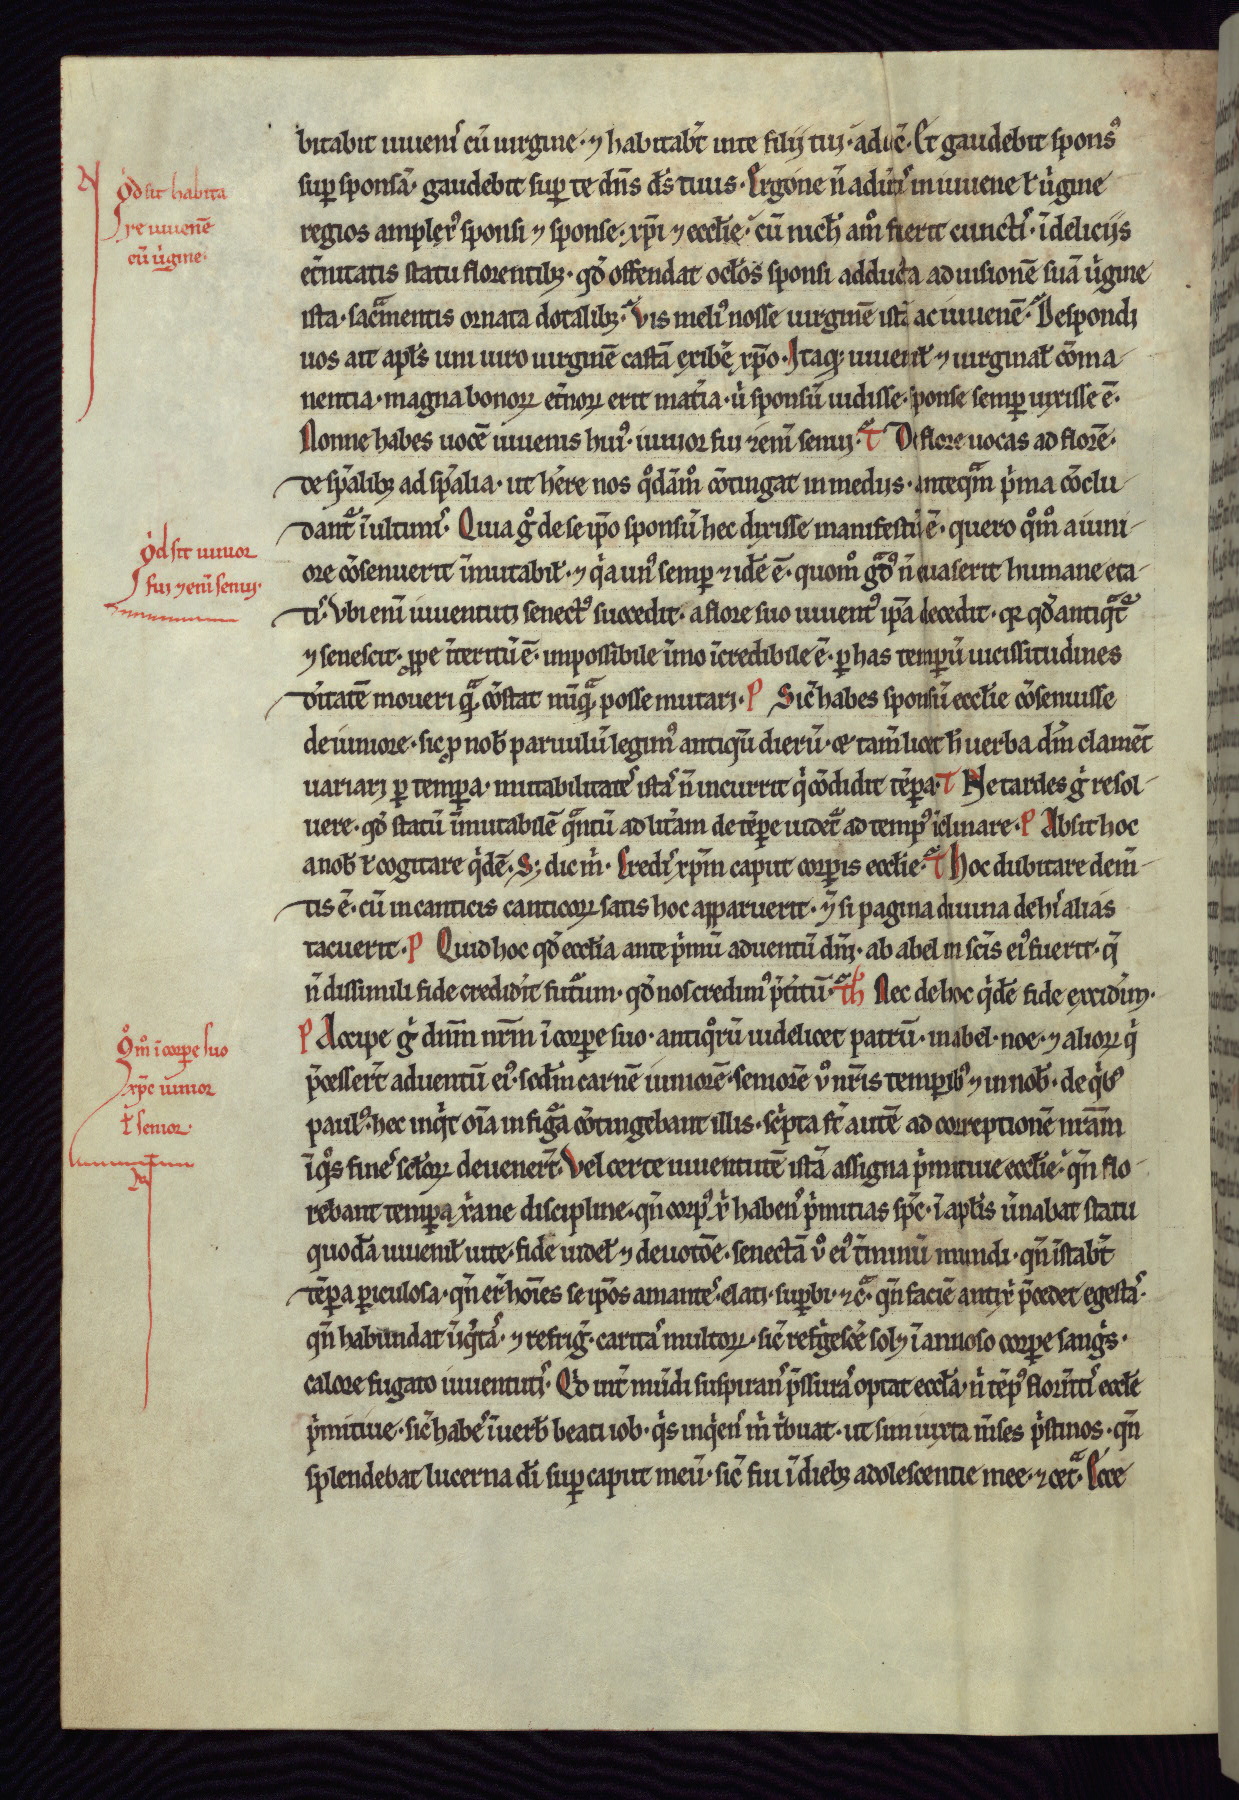 bitabit iuueni᷒ cū uirgine · ⁊ habitabt̄ in te filij tui · ad ic̄ · Et gaudebit spons᷒
sup̱ sponsā · gaudebit sup̱ te dn̄s ds̄ tuus · Ergone n̄ adu᷒ti᷒ in iuuene ł u᷒gine
regios amplex᷒ sponsi ⁊ sponse · xp̄i ⁊ eccłie · cū nich̄ am° fuerit cuncti᷒ · ī delicijs
et᷒nitatis statu florentib; · qd̄ offendat oc̄los sponsi adducta ad uisionē suā u᷒gine
ista · sac̄mentis ornata dotalib; · Vis meli᷒ nosse uirginē istā ac iuuenē · Despondi
uos ait apłs uni uiro uirginē castā exibē᷒ xp̄o · Itaq; iuuenił ⁊ uirginał cōma-
nentia · magna bonoꝝ et᷒noꝝ erit mat᷒ia · u᷒ sponsū uidisse · sponse semp̱ uixisse ē ·
Nonne habes uocē iuuenis hui᷒ · iunior fui ⁊ enī senui · T De flore uocas ad florē ·
de sp̄alib; ad sp̄alia · ut he᷒re nos qͦdām° cōtingat in medijs · anteqᵃm p᷒ma cōclu-
dant᷒ ī ultimi᷒ · Quia gͦ de se ip̄o sponsū hec dixisse manifestū ē · quero qͦm° a iuni-
ore cōsenuerit īmutabił · ⁊ qͥa un᷒ semp̱ ⁊ idē ē · quom° gᵃd᷒ n̄ euaserit humane eta-
ti᷒ · Vbi enī iuuentuti senect᷒ succedit · a flore suo iuuent᷒ ip̄a decedit · qꝛ qd̄ antiqᵃt᷒
⁊ senescit · ꝓpe īteritū ē · impossibile īmo īcredibile ē · p̱ has temp̱ū uicissitudines
d᷒itatē moueri qᵃ cōstat nūqᵃ posse mutari · P Sic̄ habes sponsū eccłie cōsenuisse
de iuniore · sic ꝓ nob̄ paruulū legim᷒ antiqū dierū · et tam̄ licet h̄ uerba dnī clamēt
uariari p̱ temp̱a · mutabilitatē᷒ istā᷒ n̄ incurrit qͥ cōdidit tēp̱a · T Ne tardes gͦ resol-
uere · qd̄ statū īmutabilē qᵃntū ad litᵃam de tēp̱e uidet᷒ ad temp᷒ īclinare · P Absit hoc
a nob̄ ł cogitare qͥdē · S; dic m᷒ · Credi᷒ xp̄m caput corp̱is eccłie · T Hoc dubitare dem̄-
tis ē · cū in canticis canticoꝝ satis hoc apparuerit · ⁊ si pagina diuina de hi᷒ alias
tacuerit · P Quid hoc qd̄ eccłia ante p᷒mū aduentū dnī · ab abel in sc̄is ei᷒ fuerit · q̄
n̄ dissimili fide credid᷒it futūrum · qd̄ nos credim᷒ p᷒t᷒itū · Th Nec de hoc qͥdē fide excidim᷒ ·
P Accipe gͦ dnm̄ nrm̄ ī corp̱e suo · antiqͦrū uidelicet patrū · in abel · noe · ⁊ alioꝝ qͥ
p᷒cesser̄t aduentū ei᷒ · sedm̄ carnē iuniorē · seniorē u᷒ nr̄is temp̱ib᷒ ⁊ in nob̄ · de qͥb᷒
paul᷒ · hec inqͥt oīa in figᵃa cōtingebant illis · sc᷒pta st̄ autē ad correptionē nrᵃm
ī qͦs fine᷒ sc̄loꝝ deuener̄t · Vel certe iuuentutē istā assigna p᷒mitiue eccłie · qn̄ flo-
rebant temp̱a x᷒ane discipline · qn̄ corp᷒ x᷒ haben᷒ p᷒mitias spc̄ · ī apłis u᷒nabat statu
quodā iuuenił uite · fide uideł ⁊ deuotōe · senectā u᷒ ei᷒ t᷒minū mundi · qn̄ īstabt̄
tēp̱a p̱iculosa · qn̄ er̄t hoīes se ip̄os amante᷒ · elati · sup̱bi · ⁊ c̄ · qn̄ faciē antix᷒ p᷒cedet egestā᷒ ·
qn̄ habundat īqͥtā᷒ · ⁊ refrig᷒ · caritā᷒ multoꝝ · sic̄ refͥgescē᷒ sol; ī annoso corp̱e sangͥs ·
calore fugato iuuentuti᷒ · Qd̄ int᷒ mūdi suspiran᷒ p᷒ssurā᷒ optat eccłā · n̄ tēp᷒ florēti᷒ eccłe
p᷒mitiue · sic̄ habē᷒ ī uerb̄ beati iob · qͥs inqͥen᷒ m᷒ t᷒buat · ut sim iuxta m̄ses p᷒stinos · qn̄
splendebat lucerna di᷒ sup̱ caput meū · sic̄ fui ī dieb; adolescentie mee · ⁊ cet᷒ · Ecce
Qd̄ sit habita
re iuuenē
cū u᷒gine ·
Qd̄ sit iunior
fui ⁊ enī senui ·
Qͦm° ī corp̱e suo
xp̄c iunior
ł senior ·